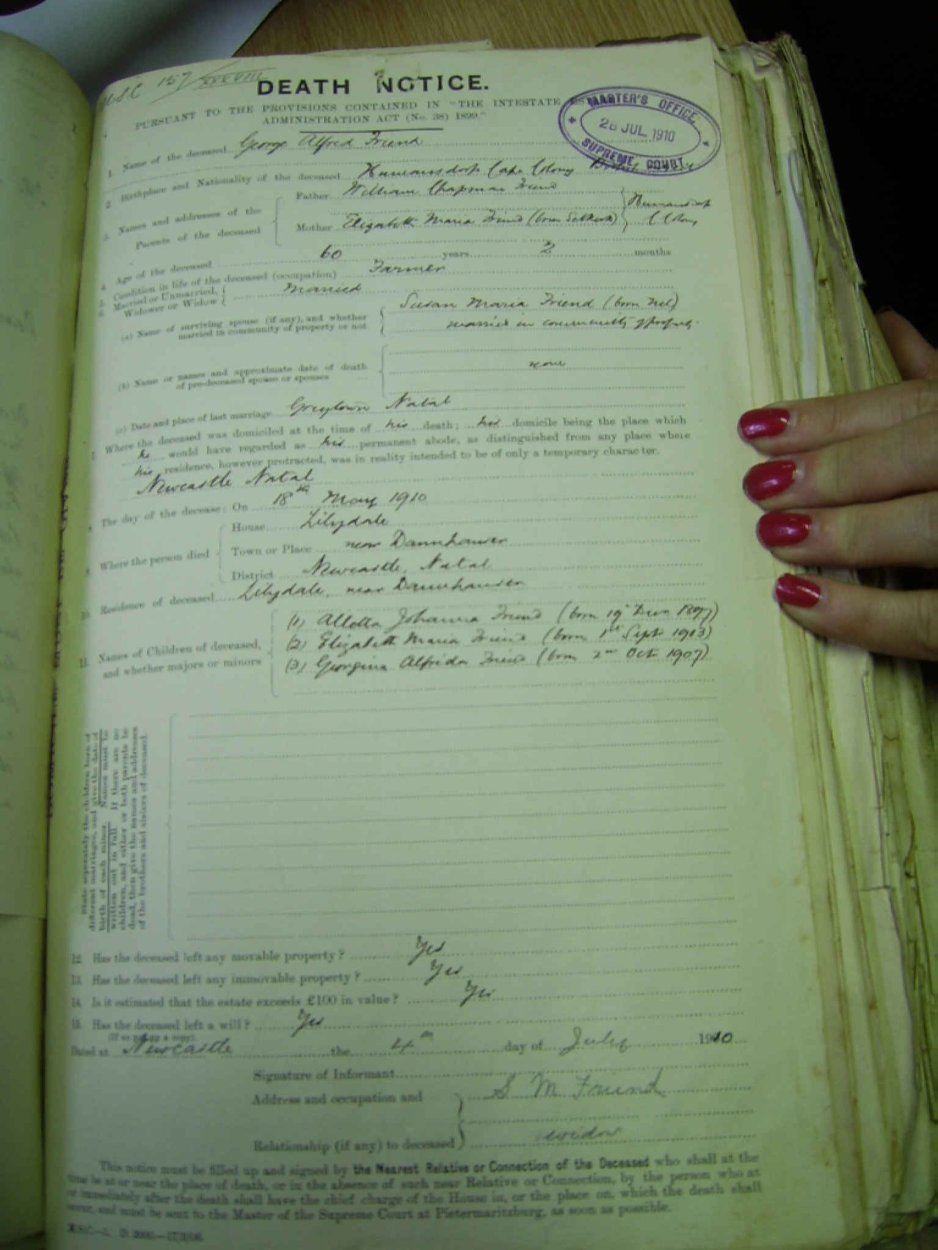 157/
DEATH NOTICE.
PURSUANT TO THE PROVISIONS CONTAINED IN "THE INTESTATE
ADMINISTRATION ACT (No. 38) 1899"
MASTER'S OFFICE
28 JUL 1910
SUPREME COURT
1. Name of the deceased George Alfred Friend
2. Birthplace and Nationality of the deceased Humansdorp Cape Colony British
3. Names and addresses of the Parents of the deceased
Father William Chapman Friend
Mother Elizabeth Maria Friend (born
Humansdorp
C Colony
4. Age of the deceased 60 years 2 months
5. Condition in life of the deceased (occupation) Farmer
6. Married or Unmarried, Widower or Widow Married
(a) Name of surviving spouse (if any), and whether
married in community of property or not
Susan Maria Friend (born Nel)
married in community of property
(b) Name or names and approximate date of death
of pre-deceased spouse or spouses
none
(c) Date and place of last marriage Greytown Natal
7. Where the deceased was domiciled at the time of his death; his domicile being the place which
he would have regarded as his permanent abode, as distinguished from any place where
his residence, however protracted, was in reality intended to be of only a temporary character.
Newcastle Natal
8. The day of the decease: On 18th May 1910
9. Where the person died
House Lilydale
Town or Place near Dannhauser
District Newcastle, Natal
10. Residence of deceased Lilydale, near Dannhauser
11. Names of Children of deceased,
and whether majors or minors
(1) Johanna Friend (born 19 1897)
(2) Elizabeth Maria Friend (born 1st Sept 1903)
(3) Georgina Alfrida Friend (born 2nd Oct 1907)
State separately the children born of
different marriages, and give the date of
birth of each minor. Names must be
written out in full. If there are no
children, and either or both parents be
dead, then give the names and addresses
of the brothers and sisters of deceased.
12. Has the deceased left any movable property? Yes
13. Has the deceased left any immovable property? Yes
14. Is it estimated that the estate exceeds £100 in value? Yes
15. Has the deceased left a will? Yes
Dated at Newcastle the 4th day of July 1910
Signature of Informant
Address and occupation and
S M Friend
Relationship (if any) to deceased widow
This notice must be filled up and signed by the Nearest Relative or Connection of the Deceased who shall at the
time be at or near the place of death, or in the absence of such near Relative or Connection, by the person who at
or immediately after the death shall have the chief charge of the House in, or the place on, which the death shall
occur, and must be sent to the Master of the Supreme Court at Pietermaritzburg, as soon as possible.